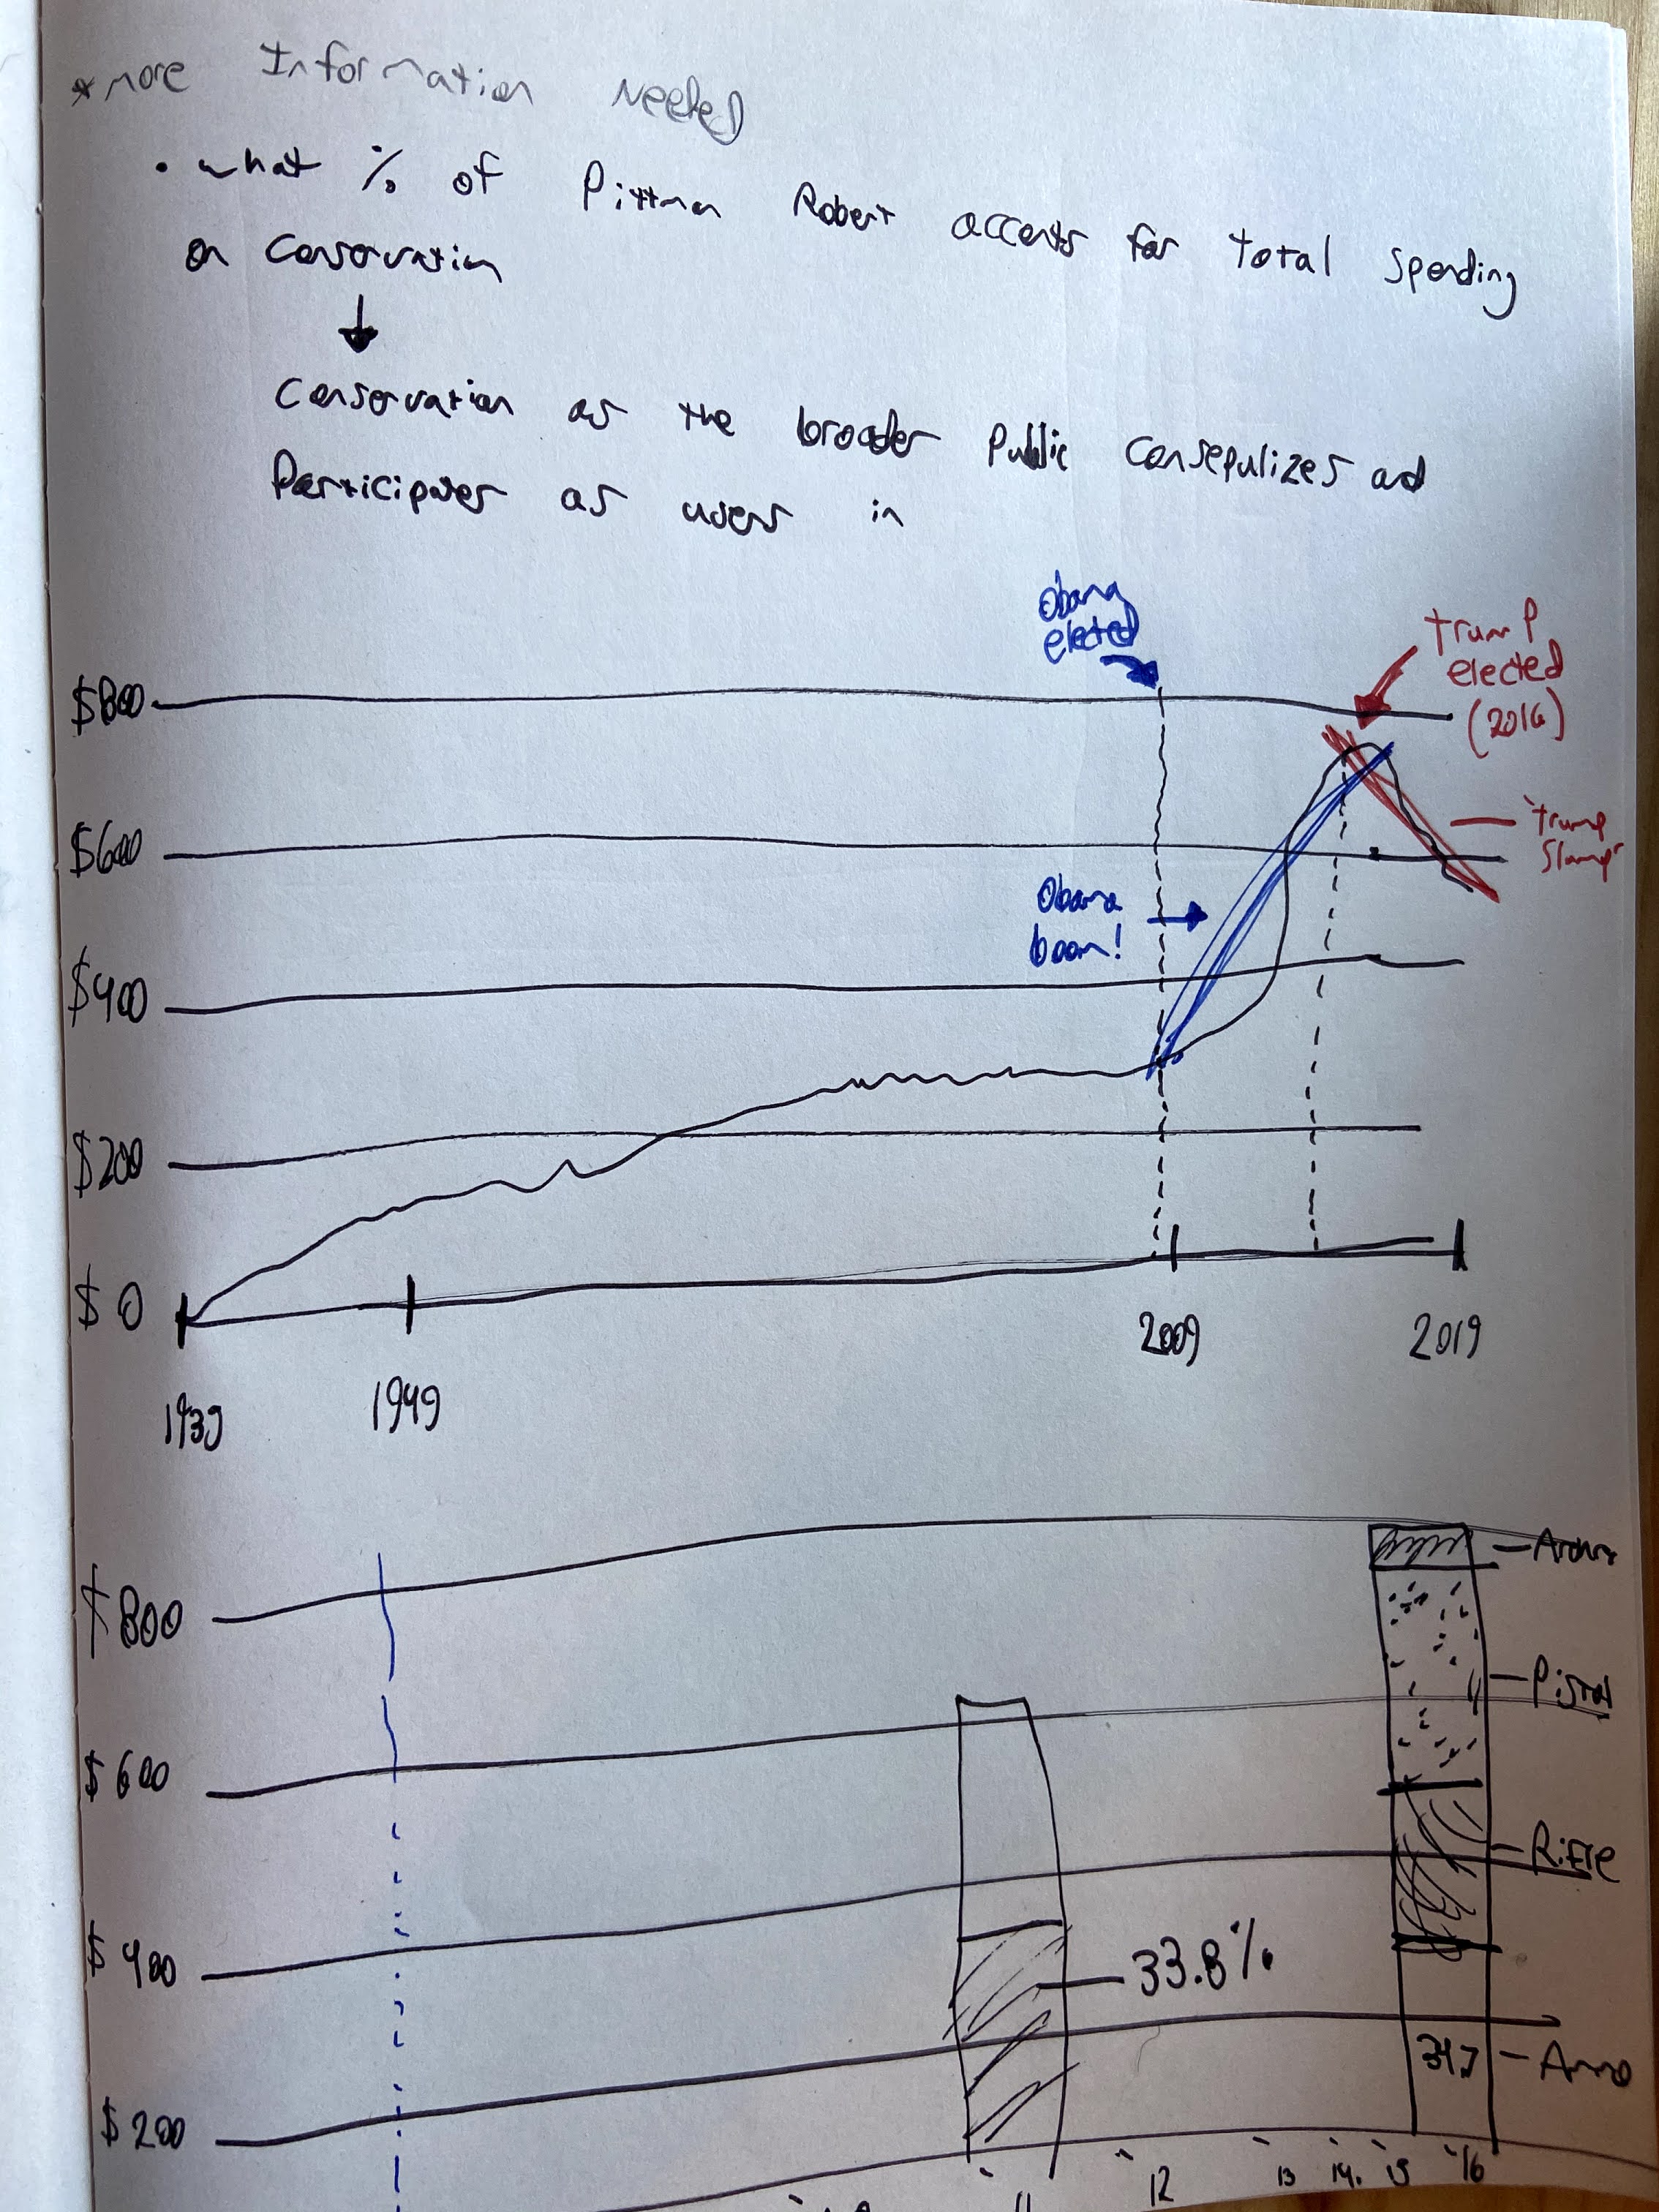 * more Information Needed
• what % of Pittman Robert accounts for total spending
on Conservation
Conservation as the broader Public Consepulizes and
Participates as users in
Obama
elected
trump
elected
(2016)
$800
trump
slump
$600
Obama
boom!
$400
$200
$0
1939
1949
2009
2019
$800
Pistol
$600
Rifle
$400
33.8%
347
Ammo
$200
11
12
13
14
15
16